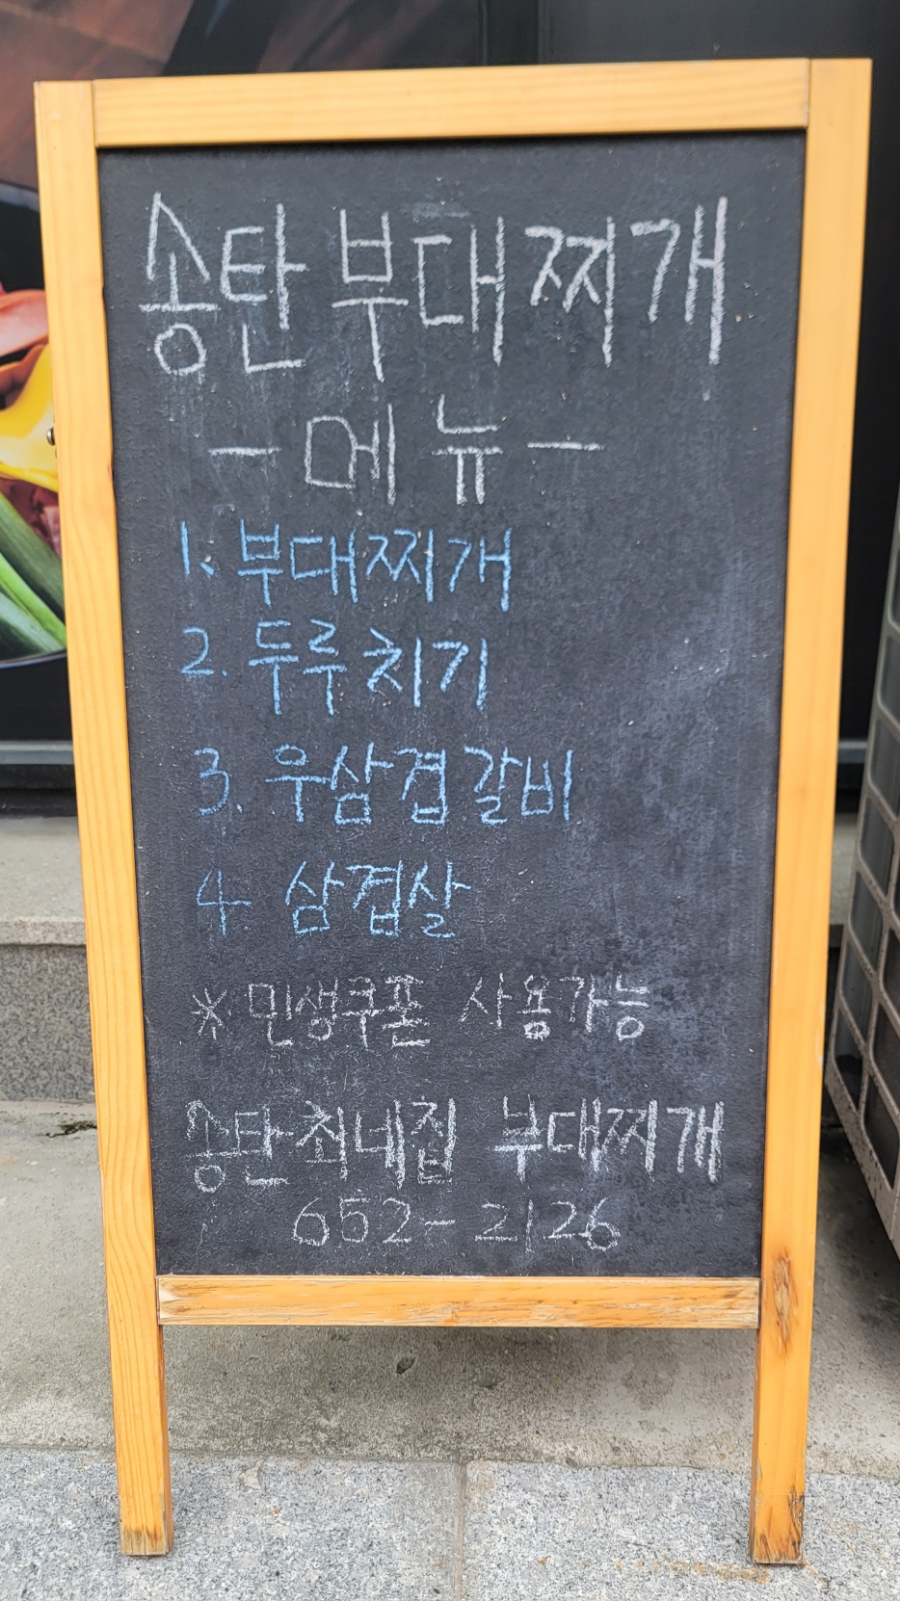 송탄 부대찌개
- 메뉴 -
1. 부대찌개
2. 두루치기
3. 우삼겹갈비
4. 삼겹살
※ 민생쿠폰 사용가능
송탄최네집 부대찌개
652-2126